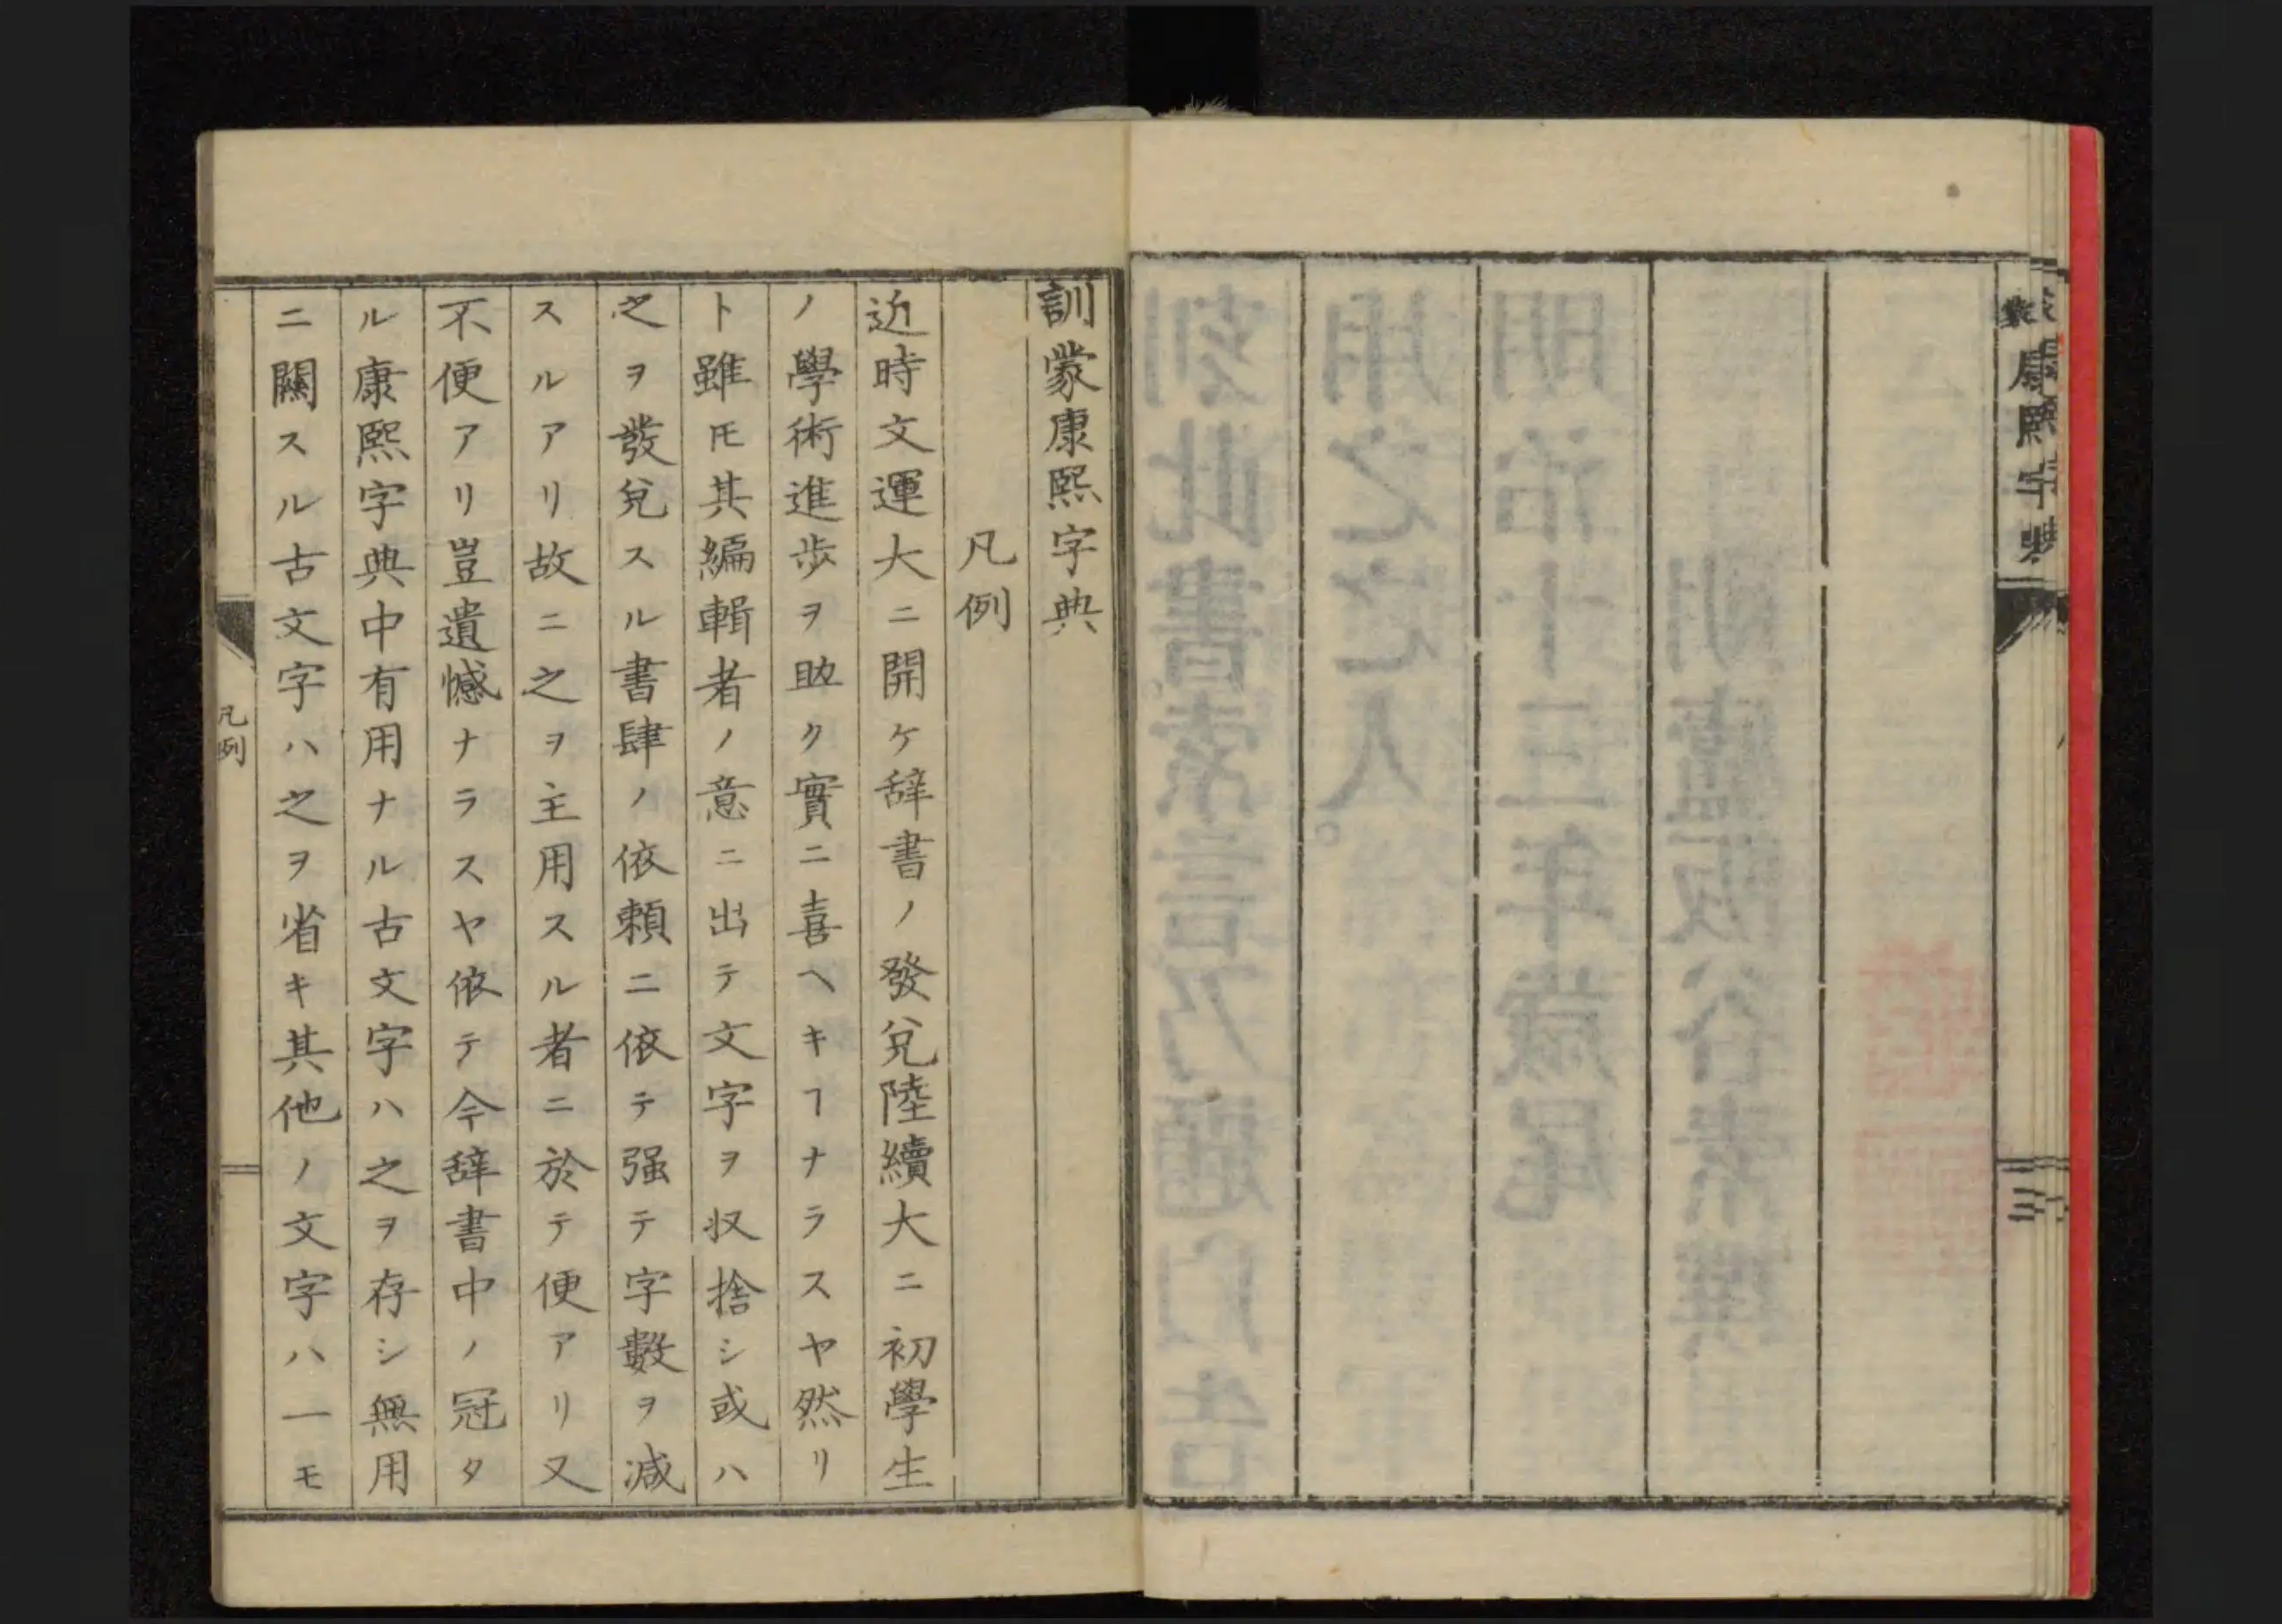 康熙字典
三
訓蒙康熙字典
凡例
近時文運大ニ開ケ辞書ノ發兌陸續大ニ初學生
ノ學術進歩ヲ助ク實ニ喜ヘキヿナラスヤ然リ
ト雖モ其編輯者ノ意ニ出テ文字ヲ収捨シ或ハ
之ヲ發兌スル書肆ノ依頼ニ依テ强テ字數ヲ减
スルアリ故ニ之ヲ主用スル者ニ於テ便アリ又
不便アリ豈遺憾ナラスヤ依テ今辞書中ノ冠タ
ル康熙字典中有用ナル古文字ハ之ヲ存シ無用
ニ關スル古文字ハ之ヲ省キ其他ノ文字ハ一モ
凡例